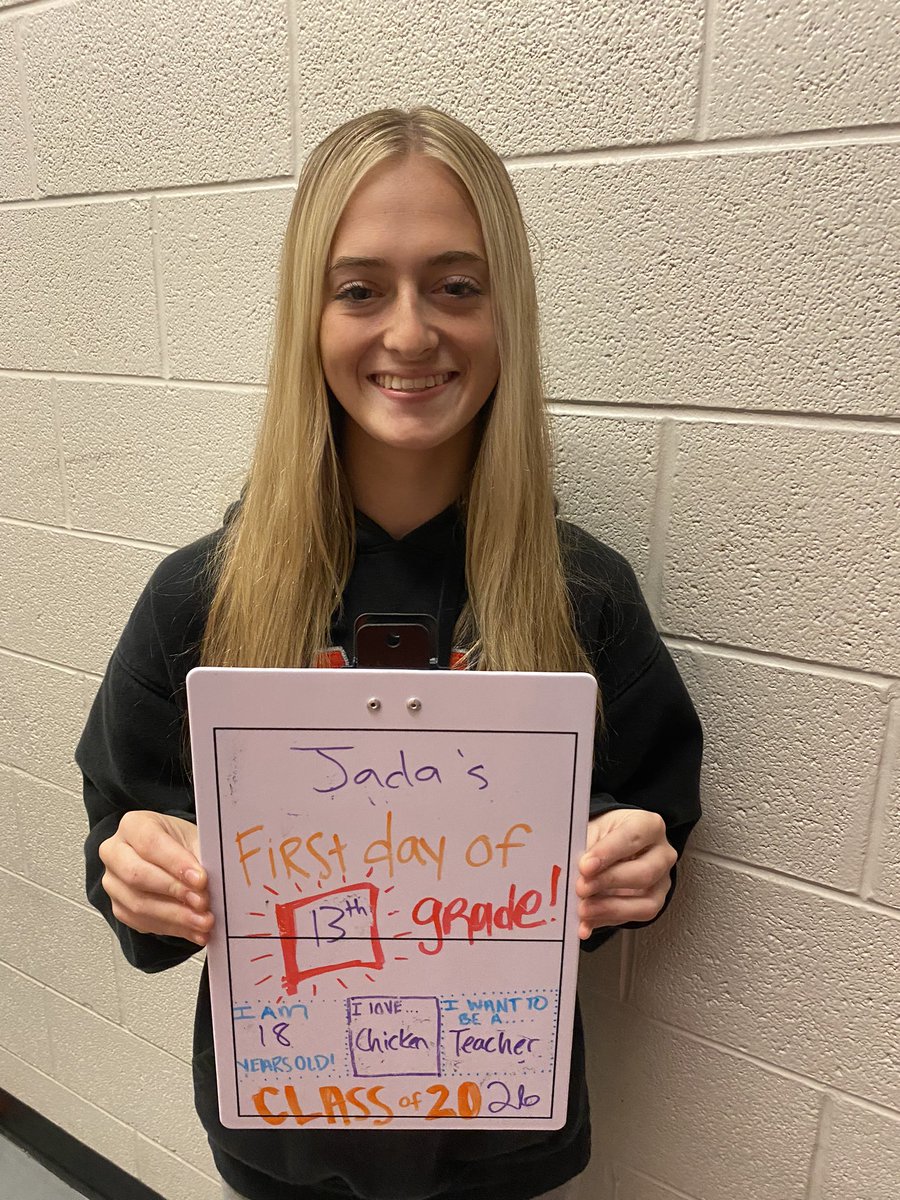 Jada's
First day of
13th grade!
I AM
18
YEARS OLD!
I LOVE...
Chicken
I WANT TO
BE A
Teacher
CLASS of 2026